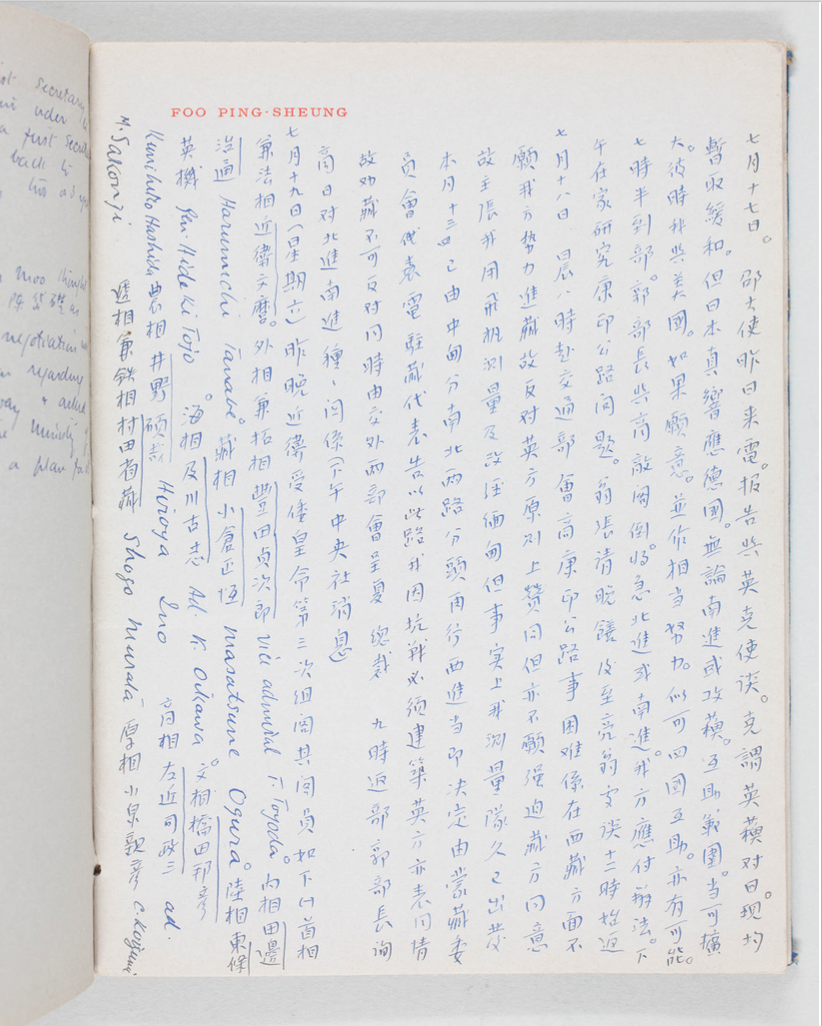 FOO PING-SHEUNG
七月十七日。邵大使昨日来電。报告與英克使谈。克謂英蘇对日现均
暫取緩和。但日本真響應德國。無論南進或攻蘇。互助範圍。当可擴
大。彼時我與美國。如果願意。並作相当努力。似可四國互助。亦有可能。
七時半到部。郭部長與高敵阁倒。将急北進或南進。我方應付辦法。下
午在家研究康印公路问题。翁張請晚饍後至亮翁處谈十二時始返
七月十八日 晨八時赴交通部 會商康印公路事 困难係在西藏方面不
願我方势力進藏故反对英方原则上贊同但亦不願强迫藏方同意
故主張我用飛机測量及改經緬甸但事实上我測量隊久已出发
本月十三日已由中甸分南北两路分頭西行西進当即決定由蒙藏委
員會代表電駐藏代表告以此路我因抗戰必須建築英方亦表同情
故劝藏不可反对同時由交外两部會呈复 總裁 九時返部郭部長询
商日对北進南進種、问係(下午中央社消息)
七月十九日(星期六)昨晚近衛受倭皇命第三次组阁其阁員如下(一)首相
兼法相近衛文麿。外相兼拓相豐田貞次郎 vice admiral T. Toyoda。内相田邊
治通 Harumichi Tanabe。藏相小倉正恆 Masatsune Ogura。陸相東條
英機 Gen. Hideki Tojo。海相及川古志 Ad. K. Oikawa。文相橋田邦彦
Kunihiko Hashida 農相井野碩哉 Hiroya Ino 商相左近司政三 ad.
M. Sakonji 遞相兼鉄相村田省蔵 Shogo Murata 厚相小泉親彦 C. Koizumi